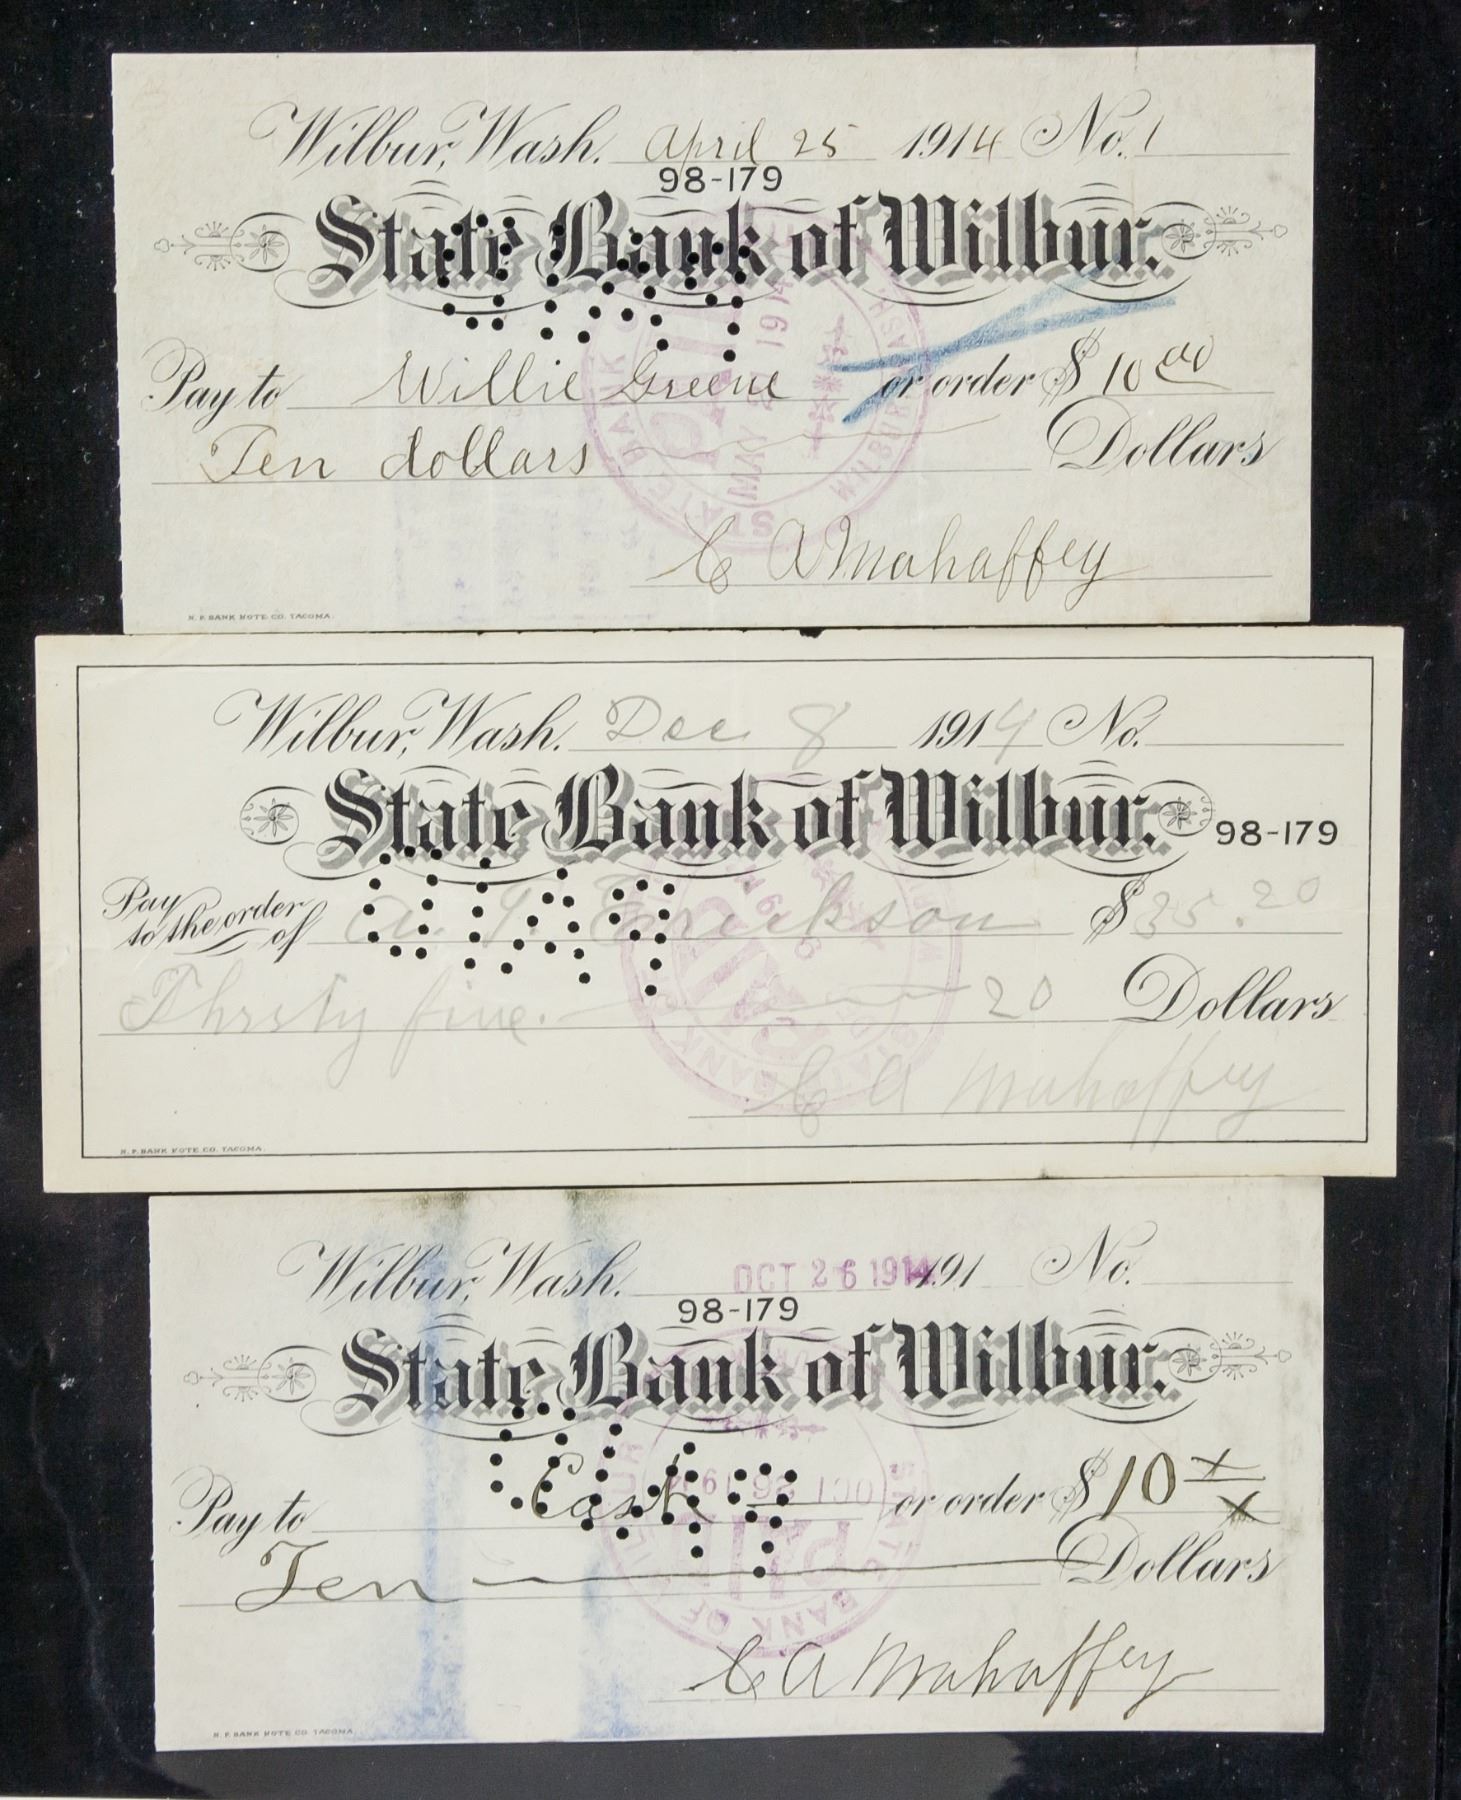 Wilbur, Wash. April 25 1914 No. 1
98-179
State Bank of Wilbur.
Pay to Willie Greene or order $ 10 00
Ten dollars Dollars
C A Mahaffey
N. P. BANK NOTE CO. TACOMA.
Wilbur, Wash. Dec 8 1914 No.
State Bank of Wilbur.
98-179
Pay to the order of A. Erickson $ 35.20
Thrsty five. 20 Dollars
C A Mahaffey
N. P. BANK NOTE CO. TACOMA.
Wilbur, Wash. OCT 26 1914 191 No.
98-179
State Bank of Wilbur.
Pay to Cash or order $ 10 x/x
Ten Dollars
C A Mahaffey
N. P. BANK NOTE CO. TACOMA.